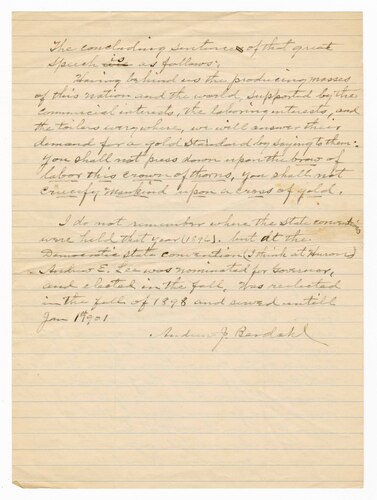 The concluding sentence of that great
speech is as follows:
Having behind us the producing masses
of this nation and the world, supported by the
commercial interests, the laboring interests, and
the toilers everywhere, we will answer their
demand for a gold standard by saying to them:
you shall not press down upon the brow of
labor this crown of thorns, you shall not
crucify mankind upon a cross of gold.
I do not remember where the State convention
were held that year (1896). but at the
Democratic State convention (I think at Huron)
Andrew E. Lee was nominated for Governor,
and elected in the fall. Was reelected
in the fall of 1898 and served untill
Jan 1st 1901
Andrew J. Bardahl